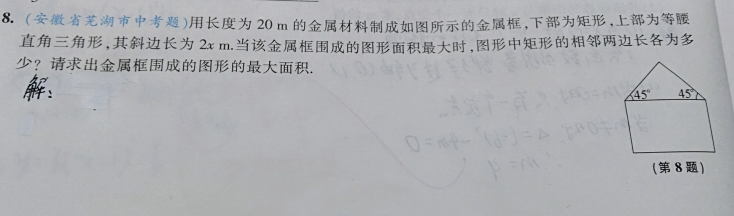 8. (安徽省芜湖市中考题)用长度为 20 m 的金属材料制成如图所示的金属框,下部为矩形,上部为等腰
直角三角形,其斜边长为 2x m.当该金属框围成的图形面积最大时,图形中矩形的相邻两边长各为多
少？请求出金属框围成的图形的最大面积.
解：
45° 45°
(第 8 题)